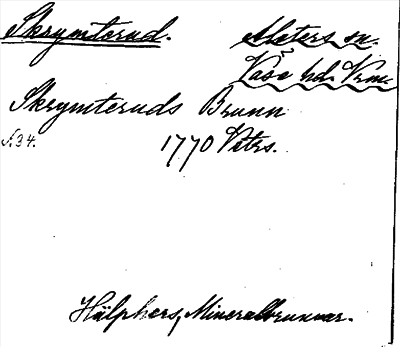 Skrymterud. Alsters sn.
Väse hd. Vrml.
Skrymteruds Brunn
s. 34. 1770 Vetrs.
Hülphers, Mineralbrunnar.